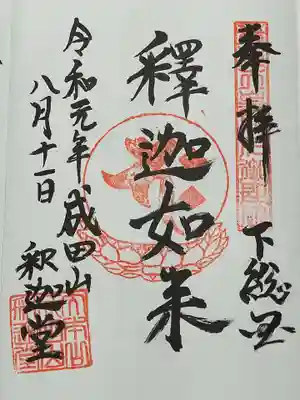 奉拝 下総国
釋迦如来
令和元年 成田山 釈迦堂
八月十一日